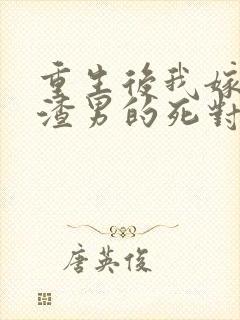 重生後我嫁
渣男的死對
唐英俊